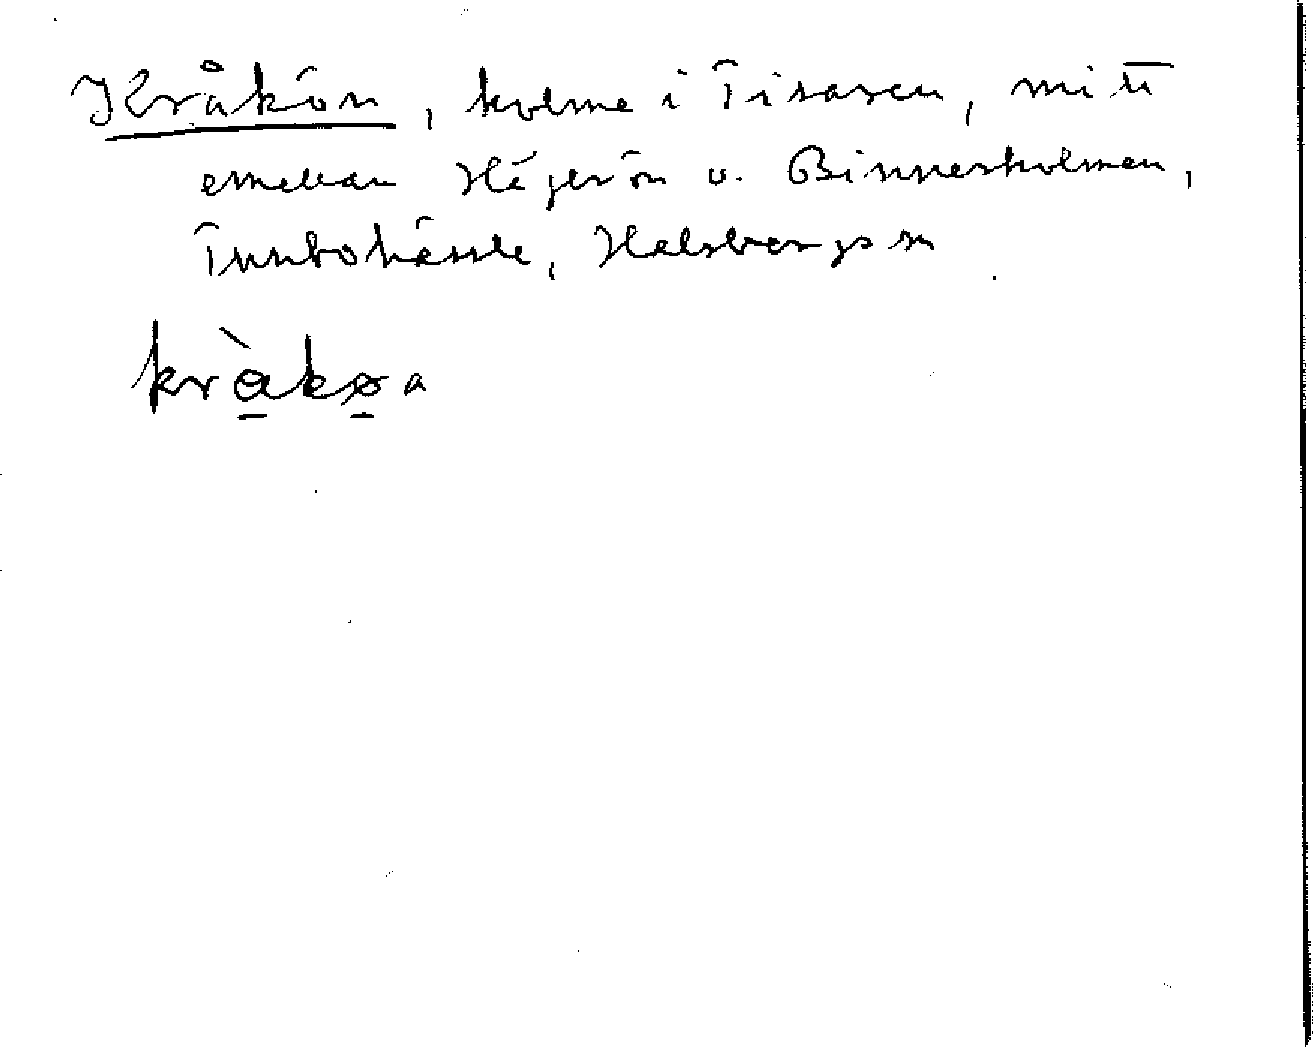 Kråkön, holme i Tisaren, mitt
emellan Hägerön o. Binnerholmen,
Tunbohässle, Halsbergs sn
kràkøa